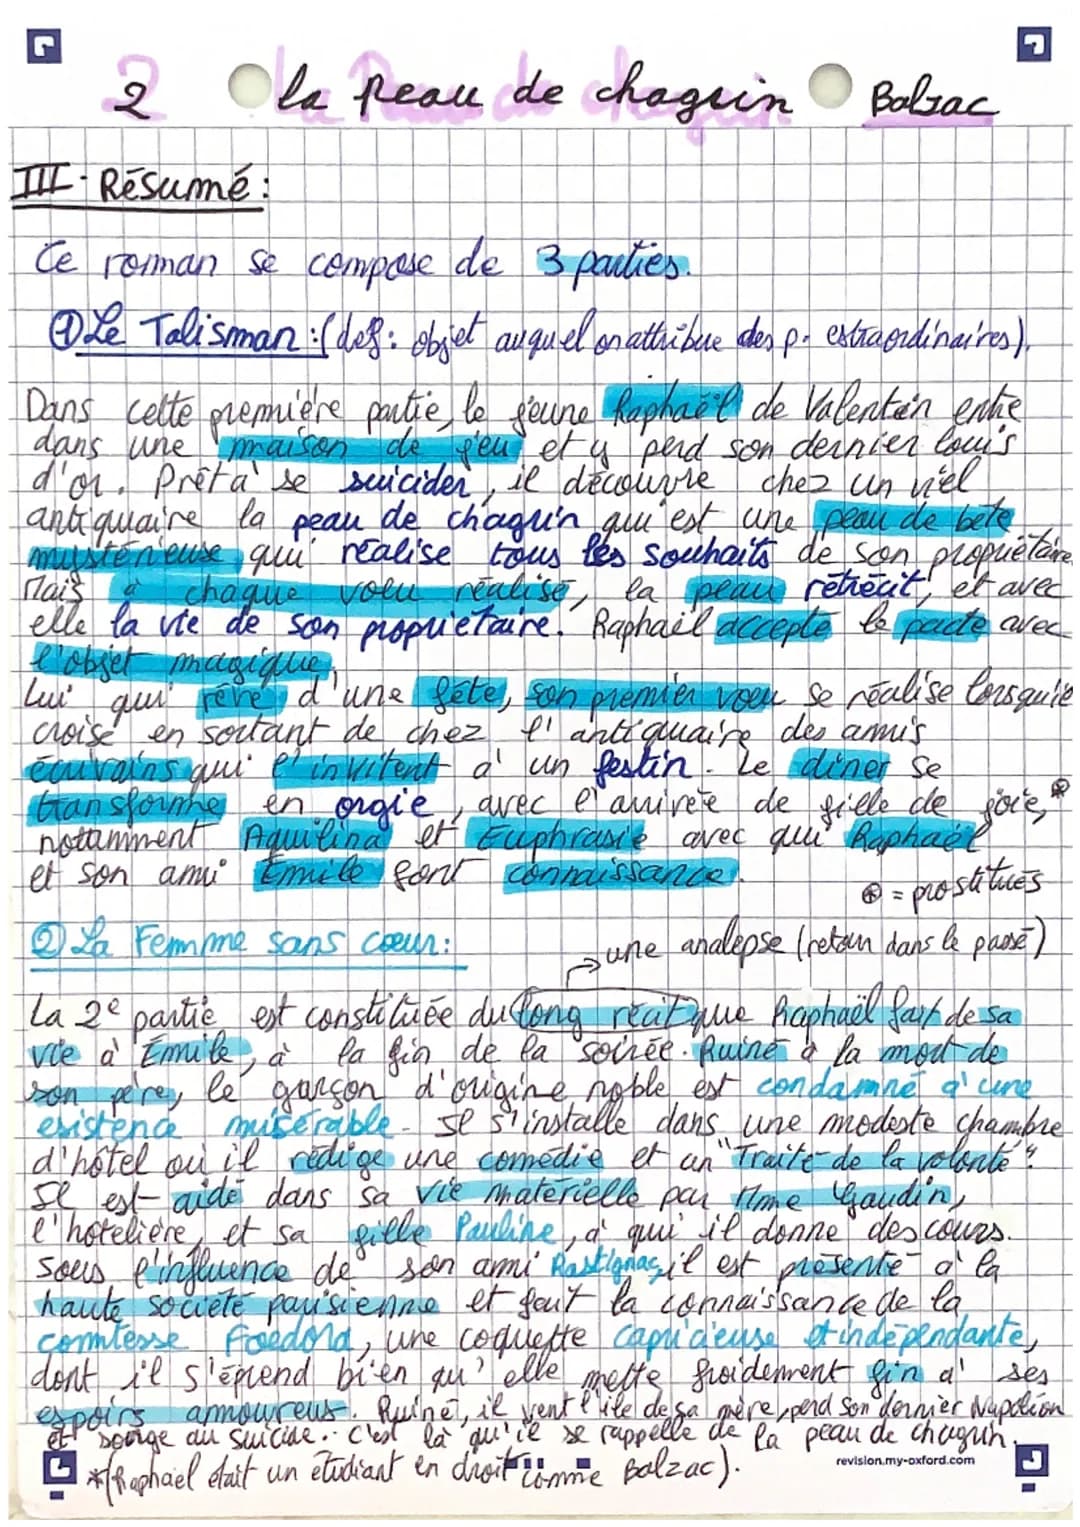 2 La Peau de chagrin Balzac
III - Résumé :
Ce roman se compose de 3 parties.
① Le Talisman : (def : objet auquel on attribue des p. extraordinaires).
Dans cette première partie, le jeune Raphaël de Valentin entre
dans une maison de jeu et y perd son dernier louis
d'or. Prêt à se suicider, il découvre chez un viel
antiquaire la peau de chagrin qui est une peau de bête
mystérieuse qui réalise tous les souhaits de son propriétaire.
Mais à chaque voeu réalisé, la peau rétrécit, et avec
elle la vie de son propriétaire. Raphaël accepte le pacte avec
l'objet magique.
Lui qui rêve d'une fête, son premier voeu se réalise lorsqu'il
croise en sortant de chez l'antiquaire des amis
écrivains qui l'invitent à un festin. Le dîner se
transforme en orgie, avec l'arrivée de fille de joie,*
notamment Aquilina et Euphrasie avec qui Raphaël
et son ami Emile font connaissance.
* = prostitués
② La Femme sans coeur :
une analepse (retour dans le passé)
La 2e partie est constituée du long récit que Raphaël fait de sa
vie à Émile, à la fin de la soirée. Ruiné à la mort de
son père, le garçon d'origine noble est condamné à une
existence misérable. Il s'installe dans une modeste chambre
d'hôtel où il rédige une comédie et un "Traité de la volonté".
Il est aidé dans sa vie matérielle par Mme Gaudin,
l'hôtelière, et sa fille Pauline, à qui il donne des cours.
Sous l'influence de son ami Rastignac, il est présenté à la
haute société parisienne et fait la connaissance de la
comtesse Foedora, une coquette capricieuse et indépendante,
dont il s'éprend bien qu'elle mette froidement fin à ses
espoirs amoureux. Ruiné, il vent l'île de sa mère, perd son dernier Napoléon
et songe au suicide.. c'est là qu'il se rappelle de la peau de chagrin.
*(Raphaël était un étudiant en droit comme Balzac).
revision.my-oxford.com